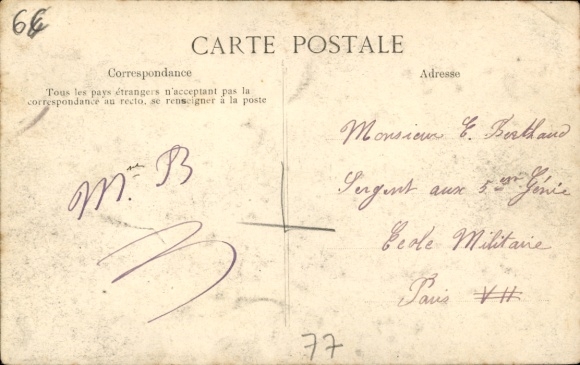 64
CARTE POSTALE
Correspondance
Tous les pays étrangers n'acceptant pas la
correspondance au recto, se renseigner à la poste
Adresse
Mme. B
Monsieur E. Berthaud
Sergent aux 5em Génie
Ecole Militaire
Paris VII
77